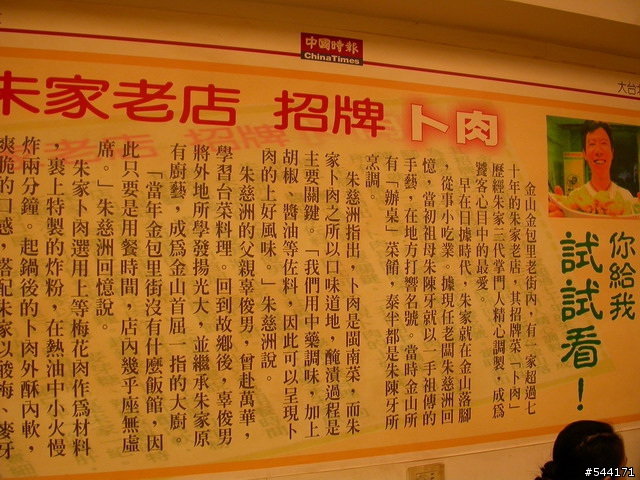 中國時報
ChinaTimes
大台北
朱家老店 招牌 卜肉
你給我
試試看！
金山金包里老街內，有一家超過七
十年的朱家老店，其招牌菜「卜肉」
歷經朱家三代掌門人精心調製，成為
饕客心目中的最愛。
早在日據時代，朱家就在金山落腳
，從事小吃業。據現任老闆朱慈洲回
憶，當初祖母朱陳牙就以一手祖傳的
手藝，在地方打響名號。當時金山所
有「辦桌」菜餚，泰半都是朱陳牙所
烹調。
朱慈洲指出，卜肉是閩南菜，而朱
家卜肉之所以口味道地，醃漬過程是
主要關鍵。「我們用中藥調味，加上
胡椒、醬油等佐料，因此可以呈現卜
肉的上好風味。」朱慈洲說。
朱慈洲的父親辜俊男，曾赴萬華，
學習台菜料理。回到故鄉後，辜俊男
將外地所學發揚光大，並繼承朱家原
有廚藝，成為金山首屈一指的大廚。
「當年金包里街沒有什麼飯館，因
此只要是用餐時間，店內幾乎座無虛
席。」朱慈洲回憶說。
朱家卜肉選用上等梅花肉作為材料
，裹上特製的炸粉，在熱油中小火慢
炸兩分鐘。起鍋後的卜肉外酥內軟，
爽脆的口感，搭配朱家以酸梅、麥牙
#544171